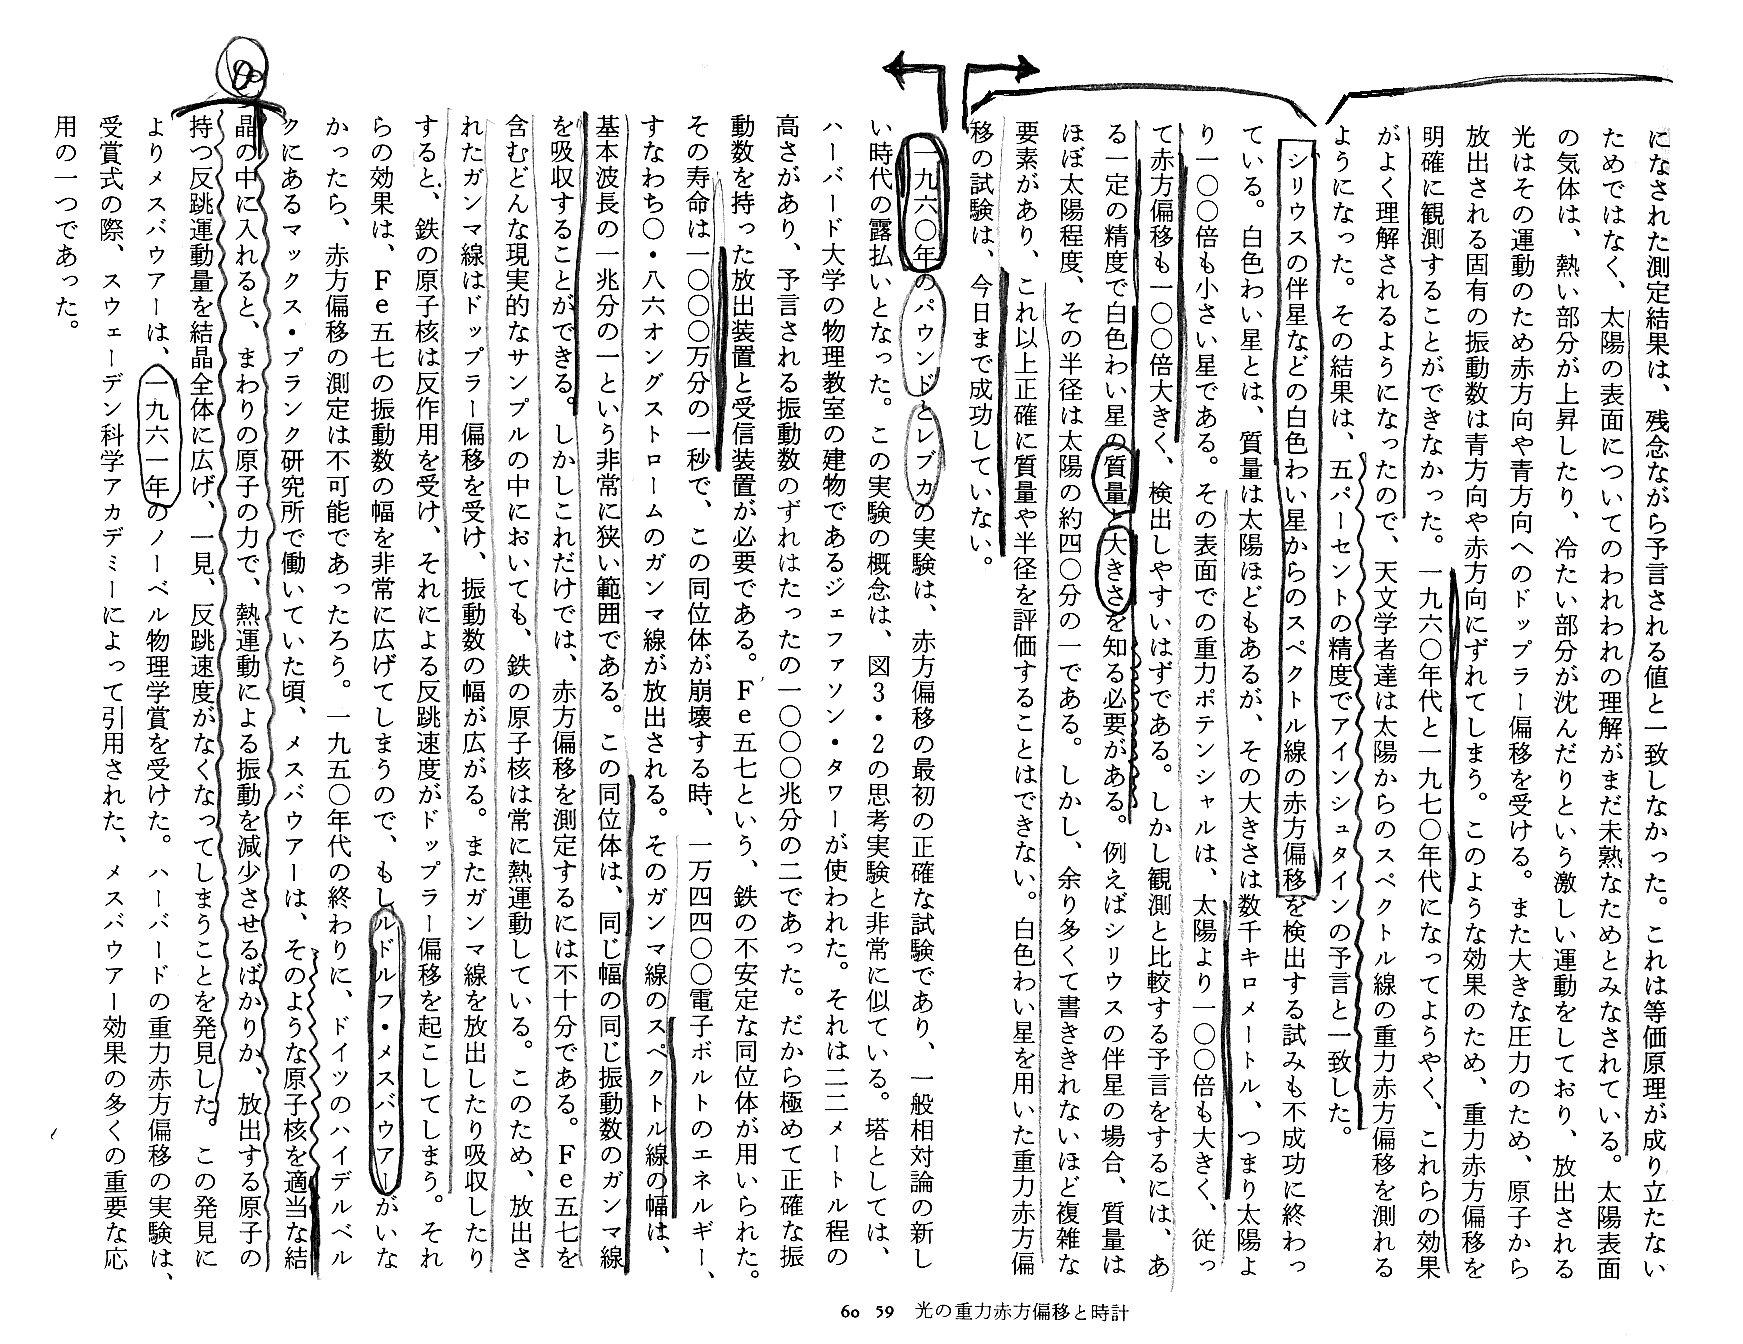 になされた測定結果は、残念ながら予言される値と一致しなかった。これは等価原理が成り立たない
ためではなく、太陽の表面についてのわれわれの理解がまだ未熟なためとみなされている。太陽表面
の気体は、熱い部分が上昇したり、冷たい部分が沈んだりという激しい運動をしており、放出される
光はその運動のため赤方向や青方向へのドップラー偏移を受ける。また大きな圧力のため、原子から
放出される固有の振動数は青方向や赤方向にずれてしまう。このような効果のため、重力赤方偏移を
明確に観測することができなかった。一九六〇年代と一九七〇年代になってようやく、これらの効果
がよく理解されるようになったので、天文学者達は太陽からのスペクトル線の重力赤方偏移を測れる
ようになった。その結果は、五パーセントの精度でアインシュタインの予言と一致した。
シリウスの伴星などの白色わい星からのスペクトル線の赤方偏移を検出する試みも不成功に終わっ
ている。白色わい星とは、質量は太陽ほどもあるが、その大きさは数千キロメートル、つまり太陽よ
り一〇〇倍も小さい星である。その表面での重力ポテンシャルは、太陽より一〇〇倍も大きく、従っ
て赤方偏移も一〇〇倍大きく、検出しやすいはずである。しかし観測と比較する予言をするには、あ
る一定の精度で白色わい星の質量と大きさを知る必要がある。例えばシリウスの伴星の場合、質量は
ほぼ太陽程度、その半径は太陽の約四〇分の一である。しかし、余り多くて書ききれないほど複雑な
要素があり、これ以上正確に質量や半径を評価することはできない。白色わい星を用いた重力赤方偏
移の試験は、今日まで成功していない。
一九六〇年のパウンドとレブカの実験は、赤方偏移の最初の正確な試験であり、一般相対論の新し
い時代の露払いとなった。この実験の概念は、図3・2の思考実験と非常に似ている。塔としては、
ハーバード大学の物理教室の建物であるジェファソン・タワーが使われた。それは二二メートル程の
高さがあり、予言される振動数のずれはたったの一〇〇〇兆分の二であった。だから極めて正確な振
動数を持った放出装置と受信装置が必要である。Fe五七という、鉄の不安定な同位体が用いられた。
その寿命は一〇〇〇万分の一秒で、この同位体が崩壊する時、一万四四〇〇電子ボルトのエネルギー、
すなわち〇・八六オングストロームのガンマ線が放出される。そのガンマ線のスペクトル線の幅は、
基本波長の一兆分の一という非常に狭い範囲である。この同位体は、同じ幅の同じ振動数のガンマ線
を吸収することができる。しかしこれだけでは、赤方偏移を測定するには不十分である。Fe五七を
含むどんな現実的なサンプルの中においても、鉄の原子核は常に熱運動している。このため、放出さ
れたガンマ線はドップラー偏移を受け、振動数の幅が広がる。またガンマ線を放出したり吸収したり
すると、鉄の原子核は反作用を受け、それによる反跳速度がドップラー偏移を起こしてしまう。それ
らの効果は、Fe五七の振動数の幅を非常に広げてしまうので、もしルドルフ・メスバウアーがいな
かったら、赤方偏移の測定は不可能であったろう。一九五〇年代の終わりに、ドイツのハイデルベル
クにあるマックス・プランク研究所で働いていた頃、メスバウアーは、そのような原子核を適当な結
晶の中に入れると、まわりの原子の力で、熱運動による振動を減少させるばかりか、放出する原子の
持つ反跳運動量を結晶全体に広げ、一見、反跳速度がなくなってしまうことを発見した。この発見に
よりメスバウアーは、一九六一年のノーベル物理学賞を受けた。ハーバードの重力赤方偏移の実験は、
受賞式の際、スウェーデン科学アカデミーによって引用された、メスバウアー効果の多くの重要な応
用の一つであった。
60 59 光の重力赤方偏移と時計